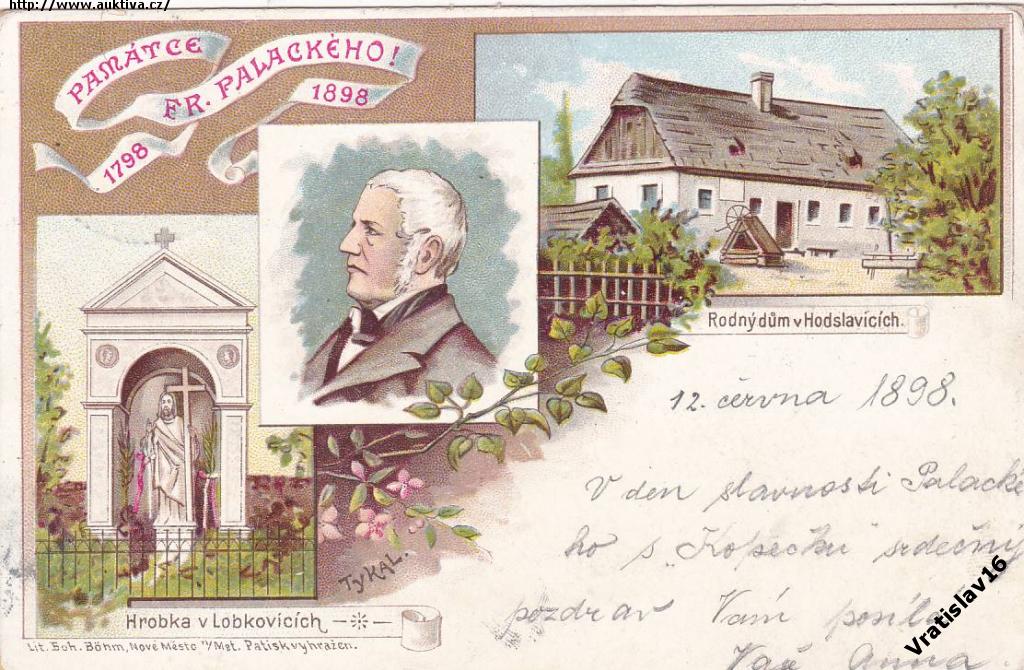 http://www.auktiva.cz/
PAMÁTCE
FR. PALACKÉHO!
1798
1898
Rodný dům v Hodslavících.
12. června 1898.
V den slavnosti Palacké
ho s Kopečku srdečný
pozdrav Vám posílá
Vaše Anna
TyKAL.
Hrobka v Lobkovicích
Lit. Boh. Böhm, Nové Město n/Met. Patisk vyhražen.
Vratislav16